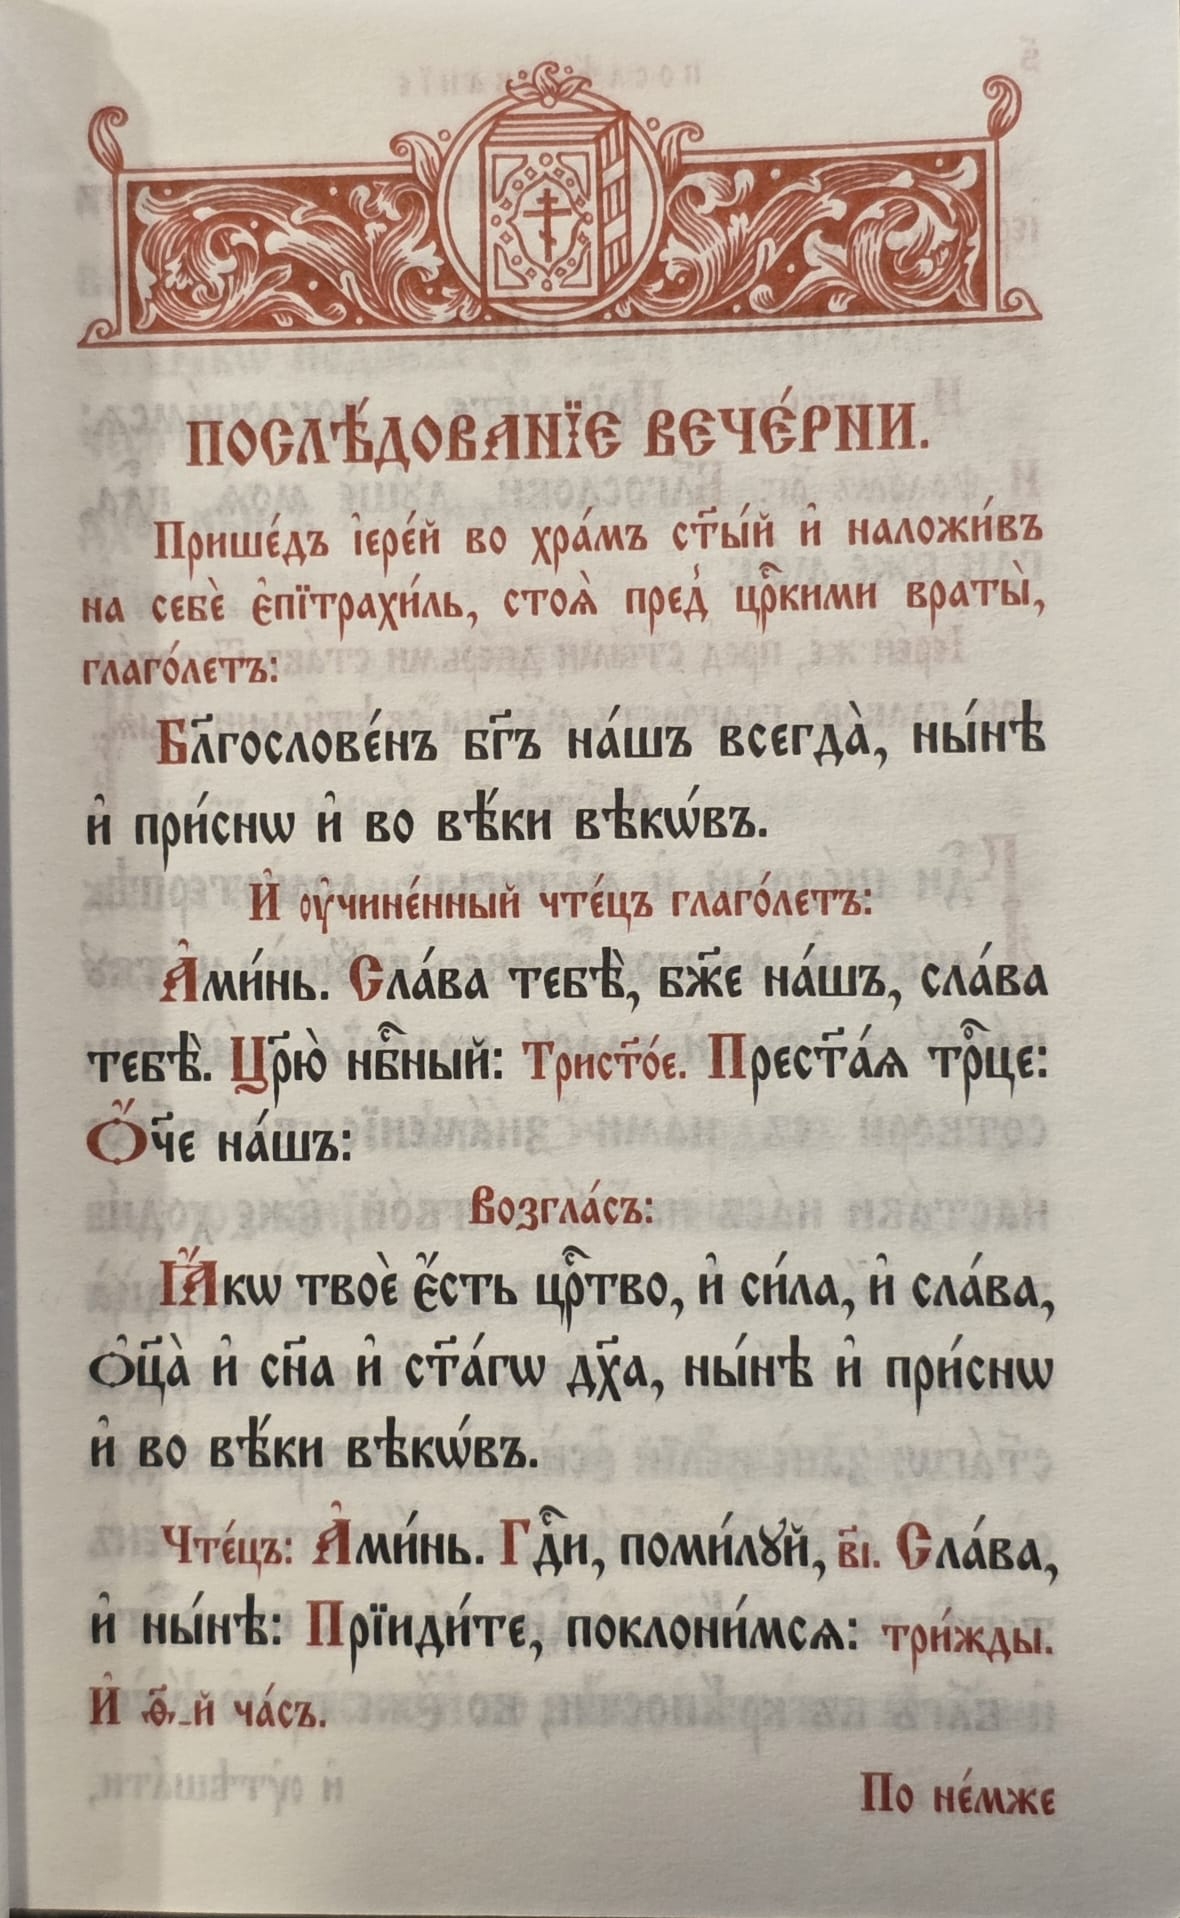 ПОСЛѢ́ДОВАНЇЕ ВЕЧЕ́РНИ.
Прише́дъ і҆ере́й во хра́мъ ст҃ы́й и҆ наложи́въ
на себѐ є҆пїтрахи́ль, стоѧ̀ пред̾ цр҇кими враты̀,
глаго́летъ:
Бл҃гослове́нъ бг҃ъ на́шъ всегда̀, ны́нѣ
и҆ при́снѡ и҆ во вѣ́ки вѣкѡ́въ.
И҆ ᲂу҆чине́нный чте́цъ глаго́летъ:
А҆ми́нь. Сла́ва тебѣ̀, бж҃е на́шъ, сла́ва
тебѣ̀. Цр҃ю̀ нбⷭ҇ный: Трист҃о́е. Прест҃а́ѧ трⷪ҇це:
Ѻ҆́ч҃е на́шъ:
Возгла́съ:
Ꙗ҆́кѡ твоѐ є҆́сть црⷭ҇тво, и҆ си́ла, и҆ сла́ва,
ѻ҆ц҃а̀ и҆ сн҃а и҆ ст҃а́гѡ дх҃а, ны́нѣ и҆ при́снѡ
и҆ во вѣ́ки вѣкѡ́въ.
Чте́цъ: А҆ми́нь. Гдⷭ҇и, поми́лꙋй, в҃і. Сла́ва,
и҆ ны́нѣ: Прїиди́те, поклони́мсѧ: три́жды.
И҆ ѳ҃-й ча́съ.
По не́мже